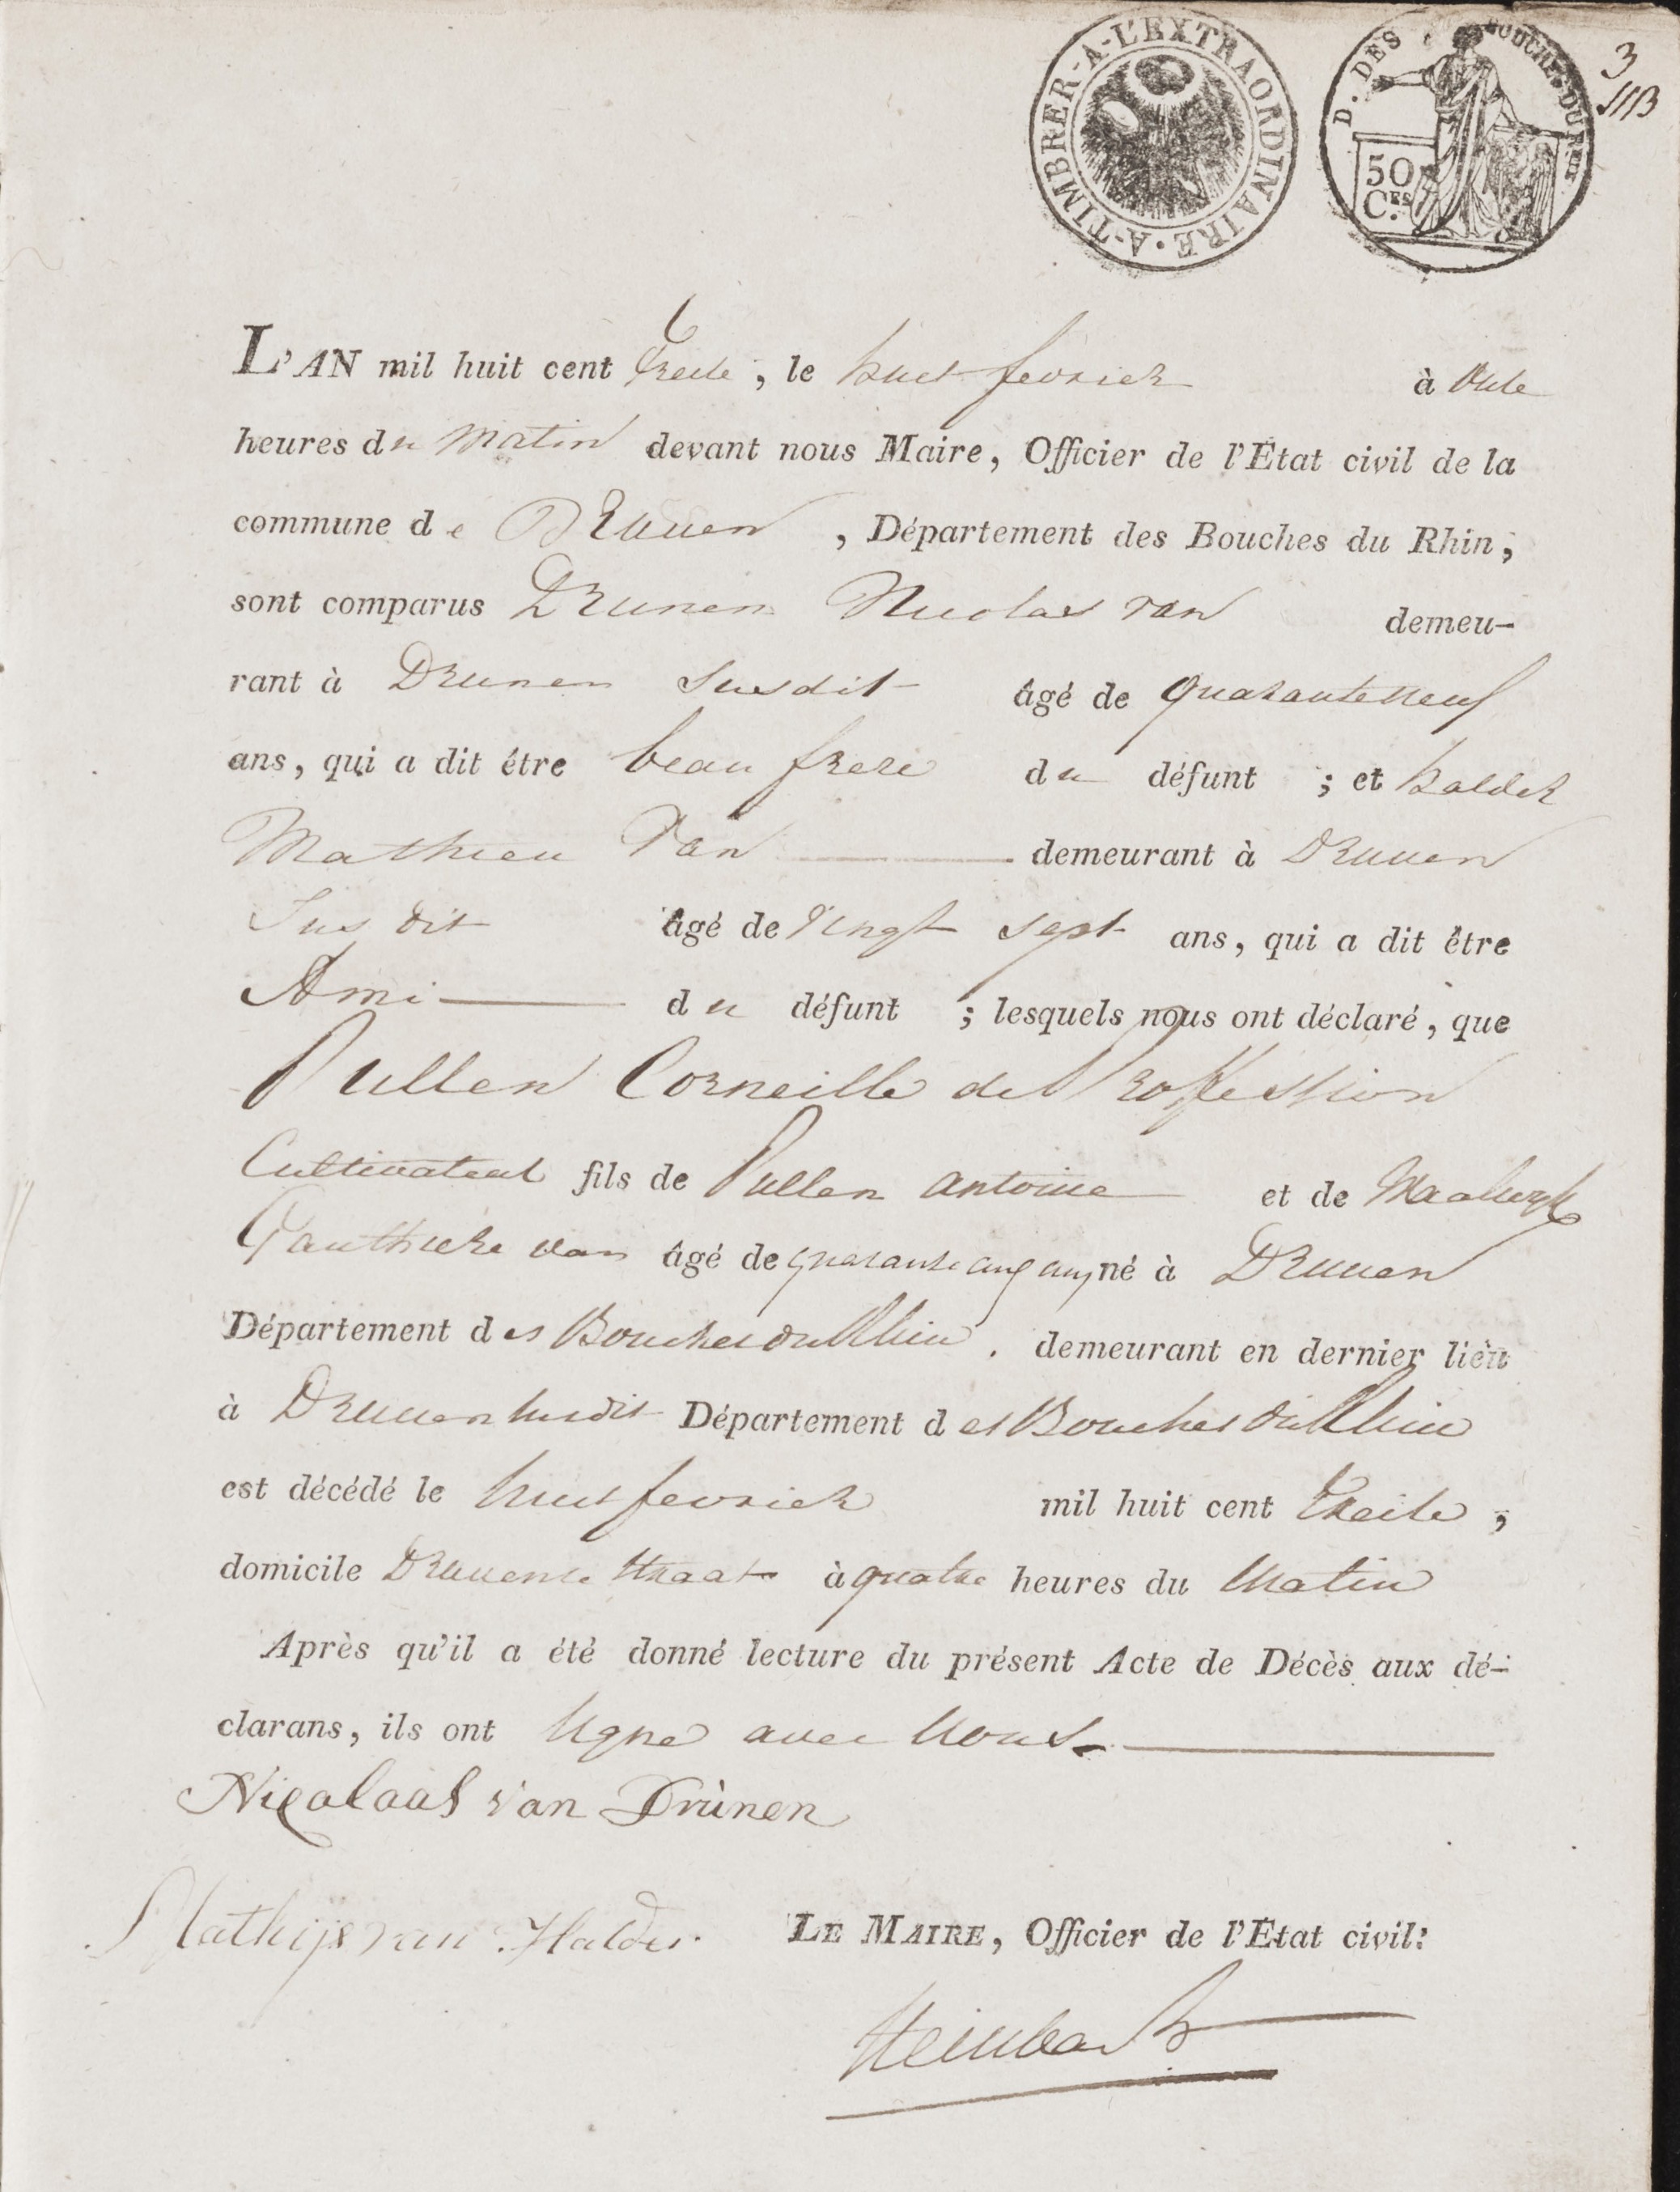 A-TIMBRER-A-L'EXTRAORDINAIRE.
D. DES BOUCHES. DU RHIN
50
C.ES
3
6
L'AN mil huit cent treile, le huit fevrier à onle
heures du matin devant nous Maire, Officier de l'État civil de la
commune de Drunen, Département des Bouches du Rhin,
sont comparus Drunen Nicolas van demeu-
rant à Drunen susdit âgé de quaranteneuf
ans, qui a dit être beau frere du défunt ; et halder
Mathieu Van demeurant à Drunen
Sus dit âgé de Vingt sept ans, qui a dit être
Ami du défunt ; lesquels nous ont déclaré, que
Pullen Corneille de Proffession
Cultivateur fils de Pullen antoine et de Maalwyk
Gauthiere van âgé de quarante cinq ans né à Drunen
Département des Bouches du Rhin. demeurant en dernier lieu
à Drunen susdit Département des Bouches du Rhin
est décédé le huit fevrier mil huit cent treile,
domicile Drunense straat à quatre heures du Matin
Après qu'il a été donné lecture du présent Acte de Décès aux dé-
clarans, ils ont signe avec nous
Nicolaas van Drùnen
Mathijs van Halder.
LE MAIRE, Officier de l'État civil: